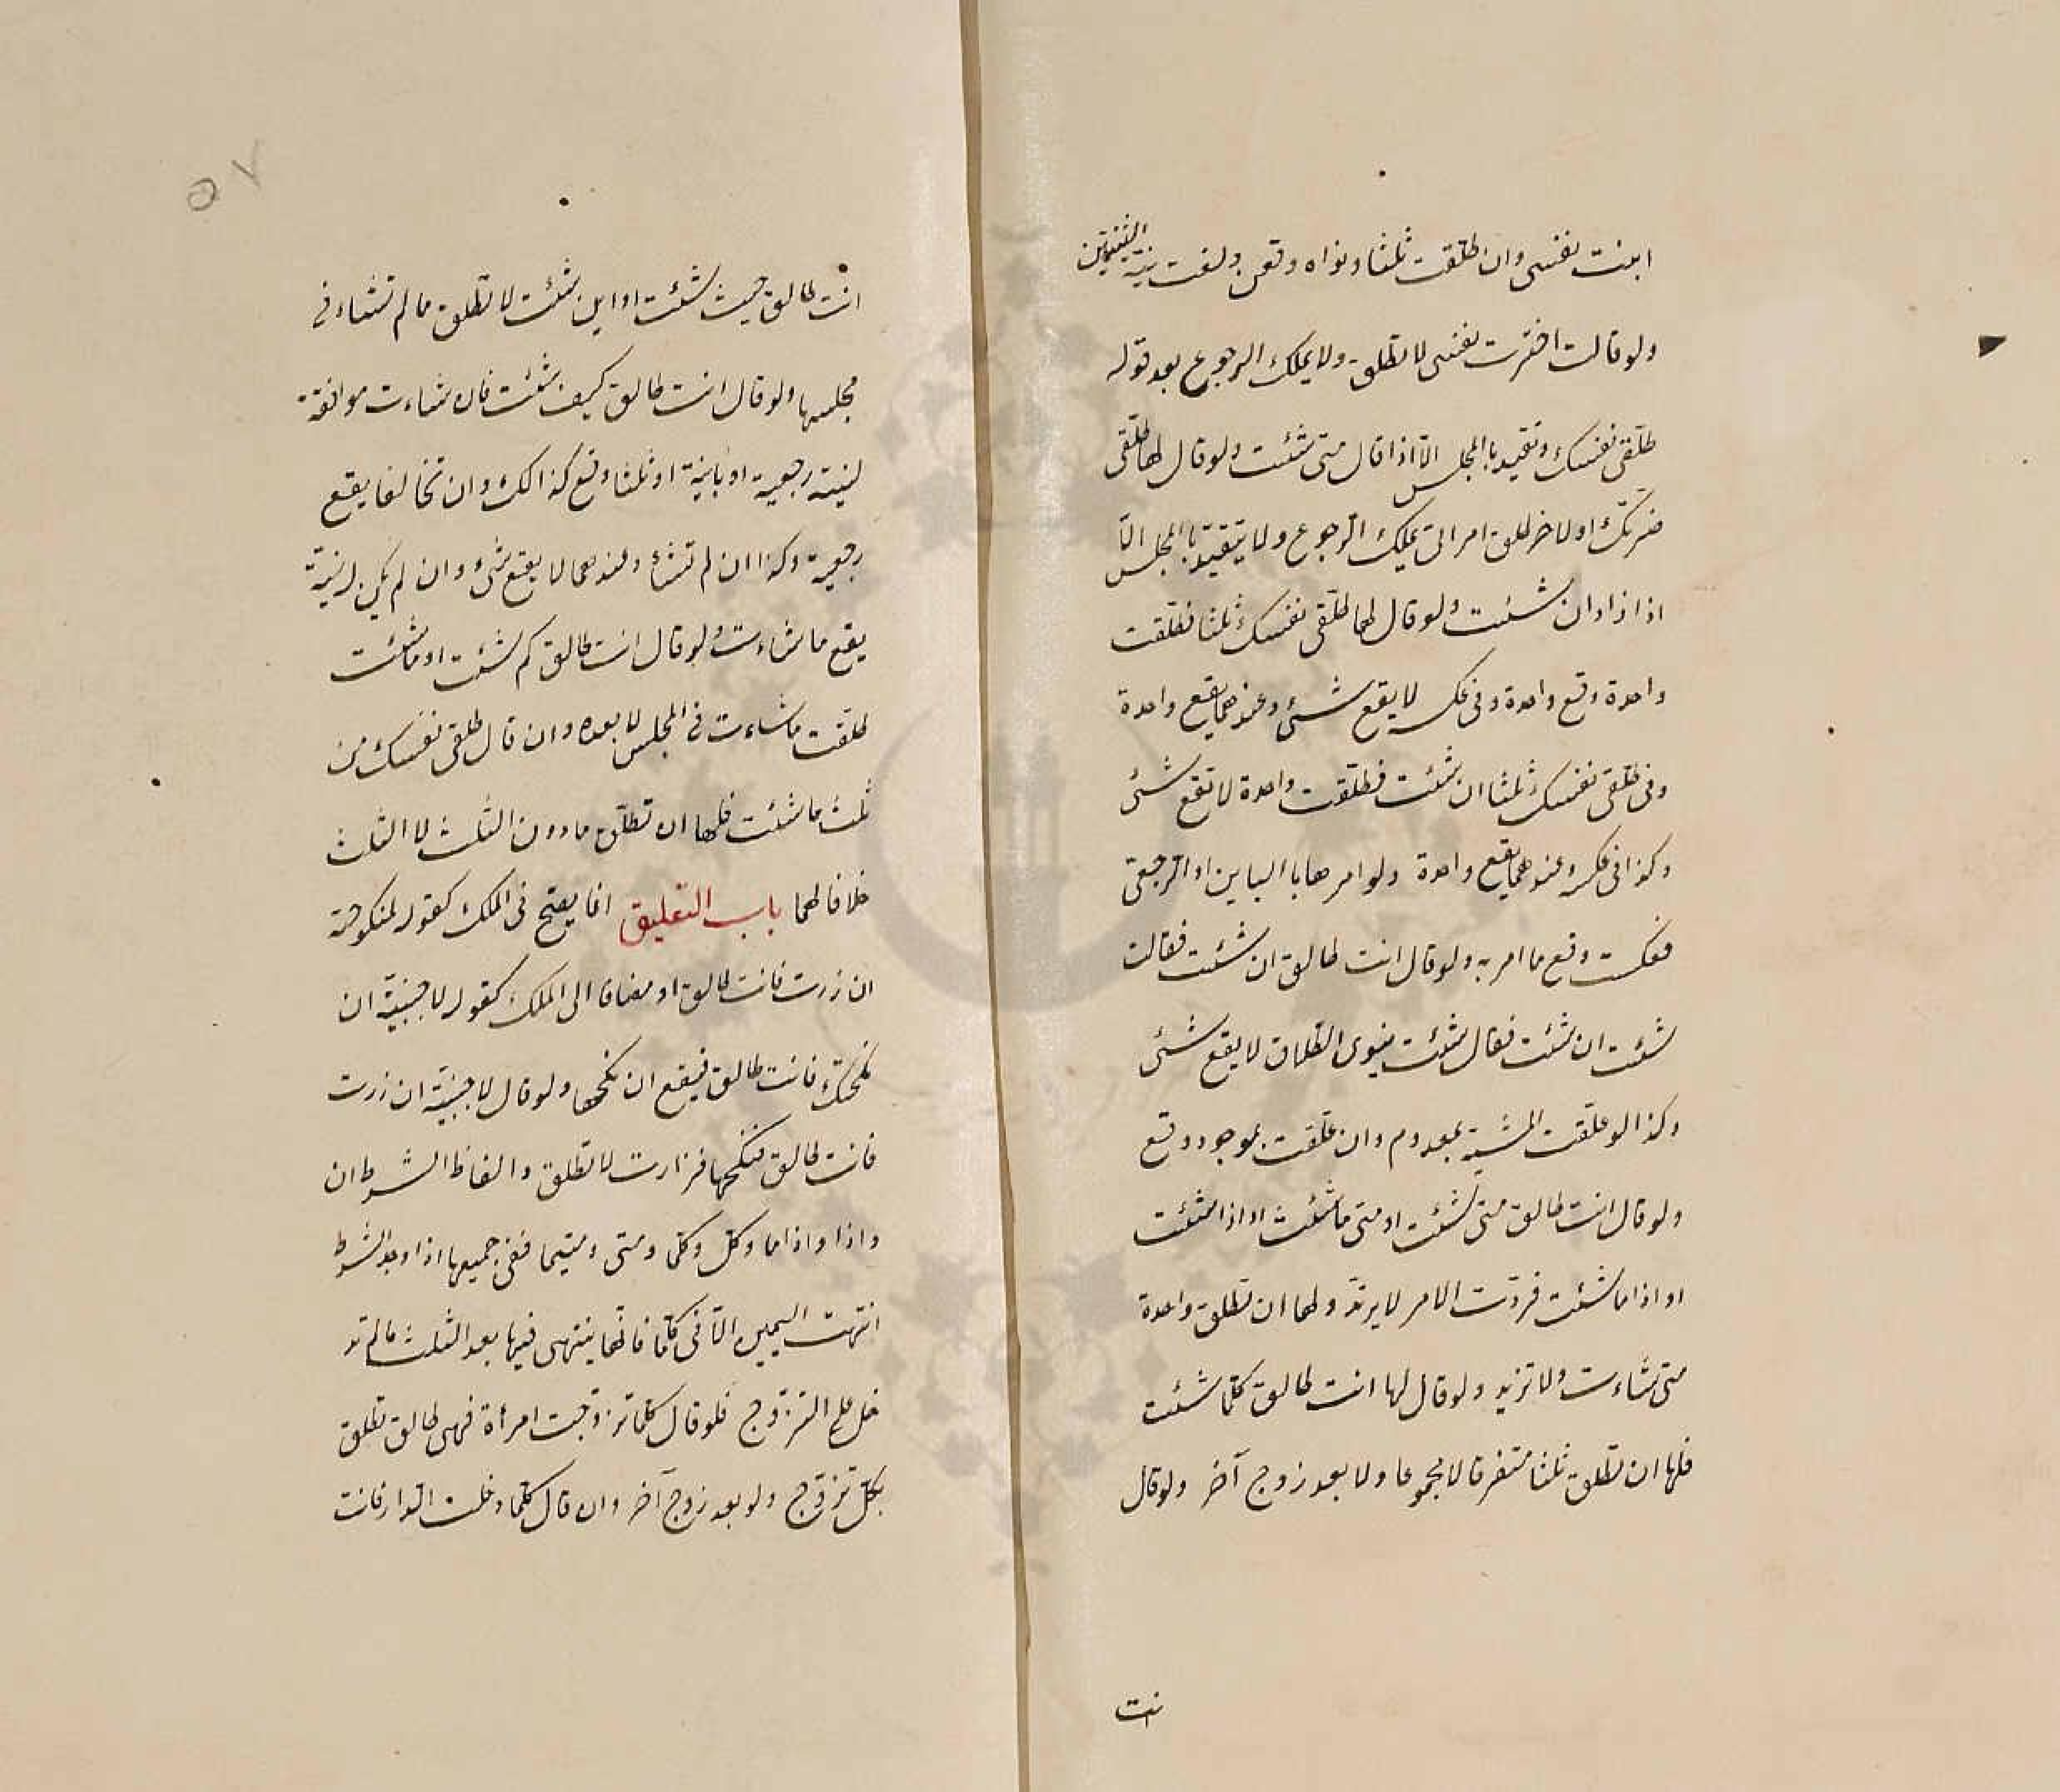 ابنت نفسى وان طلّقت ثلثا ونواه وقعن ولغت نية الثنتين
ولو قالت اخترت نفسى لا تطلق ولا يملك الرجوع بعد قوله
طلّقى نفسك وتقيد بالمجلس الّا اذا قال متى شئت ولو قال لها طلّقى
ضرتك او لاخر طلق امراتى يملك الرجوع ولا يتقيد بالمجلس الّا
اذا زاد ان شئت ولو قال لها طلّقى نفسك ثلثا فطلّقت
واحدة وقع واحدة وفى عكسه لا يقع شئ وعندهما يقع واحدة
وفى طلّقى نفسك ثلثا ان شئت فطلّقت واحدة لا تقع شئ
وكذا فى عكسه وعندهما يقع واحدة ولو امرها بالباين او الرجعى
فعكست وقع ما امر به ولو قال انت طالق ان شئت فقالت
شئت ان شئت فقال شئت ينوى الطلاق لا يقع شئ
وكذا لو علّقت المشية بمعدوم وان علّقت بموجود وقع
ولو قال انت طالق متى شئت او متى ما شئت او اذا شئت
او اذا ما شئت فردّت الامر لا يرتدّ ولها ان تطلق واحدة
متى شاءت ولا تزيد ولو قال لها انت طالق كلّما شئت
فلها ان تطلق ثلثا متفرقا لا مجموعا ولا بعد زوج آخر ولو قال
انت
٥٧
انت طالق حيث شئت او اين شئت لا تطلق ما لم تشاء فى
مجلسها ولو قال انت طالق كيف شئت فان شاءت موافقة
لنيته رجعية او باينة او ثلثا وقع كذالك وان تخالفا يقع
رجعية وكذا ان لم تشاء وعندهما لا يقع شئ وان لم يكن له نية
يقع ما شاءت ولو قال انت طالق كم شئت او ما شئت
طلّقت ما شاءت فى المجلس لا بعده وان قال طلّقى نفسك من
ثلث ما شئت فلها ان تطلّق ما دون الثلث لا الثلث
خلافا لهما باب التعليق انما يصح فى الملك كقوله لمنكوحته
ان زرت فانت طالق او مضافا الى الملك كقوله لاجنبية ان
نكحتك فانت طالق فيقع ان نكحها ولو قال لاجنبية ان زرت
فانت طالق فنكحها فزارت لا تطلق والفاظ الشرط ان
واذا واذا ما وكل وكلما ومتى ومتيما ففى جميعها اذا وجد الشرط
انتهت اليمين الّا فى كلّما فانها ينتهى فيها بعد الثلث ما لم تد
خل على التزوج فلو قال كلما تزوجت امرأة فهى طالق تطلق
بكل تزوج ولو بعد زوج آخر وان قال كلّما دخلت الدار فانت